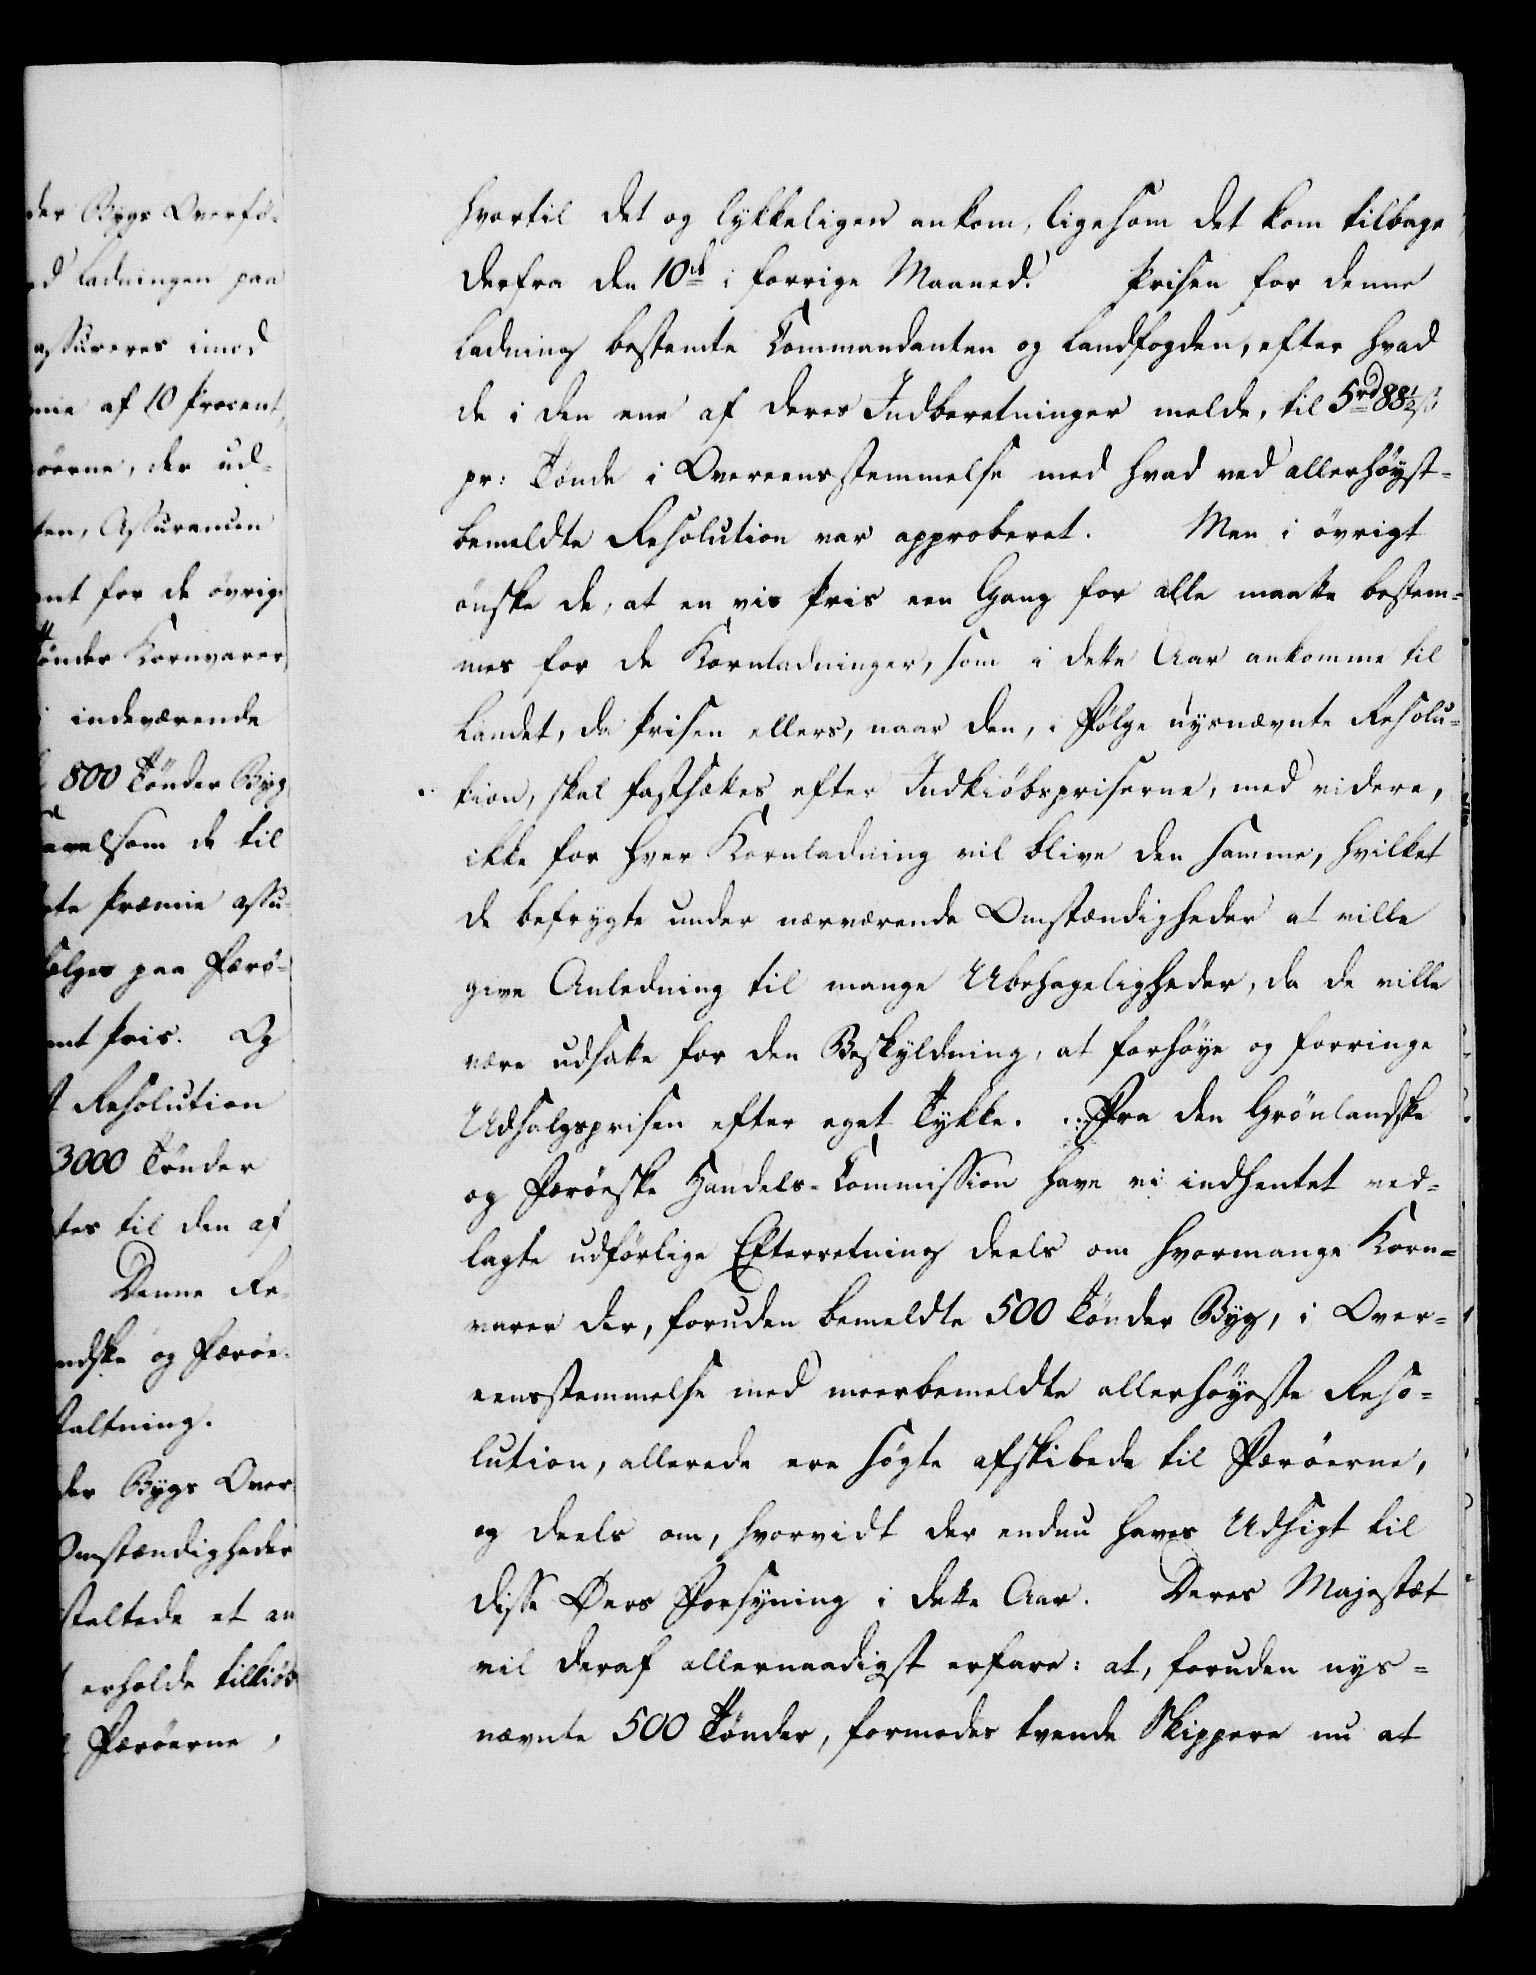 der Bygs Overfö-
ed Ladningen paa
assureres imod
mie af 10 Procent
öerne, der ud-
ten, Assurancen
ent for de övrige
Tönder Kornvarer
indeværende
800 Tönder Byg
saavelsom de til
te Præmie assu-
sælges paa Færö-
mt Pris. Og
Resolution
3000 Tönder
tes til den af
Denne Re-
ndske og Færöe-
staltning.
der Bygs Over-
Omstændigheder
staltede et an
erholde tilkiös
Færöerne,
hvortil det og lykkeligen ankom, ligesom det kom tilbage
derfra den 10de i forrige Maaned. Prisen for denne
Ladning bestemte Commandanten og Landfogden, efter hvad
de i den ene af deres Indberetninger melde, til 5rd 88½ß
pr: Tönde i Overeensstemmelse med hvad ved allerhöyst-
bemeldte Resolution var approberet. Men i övrigt
önske de, at en vis Pris een Gang for alle maatte bestem-
mes for de Kornladninger, som i dette Aar ankomme til
Landet, da Prisen ellers, naar den, i Fölge nysnævnte Resolu-
tion, skal fastsættes efter Indkiöbspriserne, med videre,
ikke for hver Kornladning vil blive den samme, hvilket
de befrygte under nærværende Omstændigheder at ville
give Anledning til mange Ubehageligheder, da de ville
være udsatte for den Beskyldning, at forhöye og forringe
Udsalgsprisen efter eget Tykke. Fra den Grönlandske
og Færöeske Handels-Commission have vi indhentet ved-
lagte udförlige Efterretning deels om hvormange Korn-
varer der, foruden bemeldte 500 Tönder Byg, i Over-
eensstemmelse med meerbemeldte allerhöyeste Reso-
lution, allerede ere sögte afskibede til Færöerne,
og deels om, hvorvidt der endnu haves Udsigt til
disse Öers Forsyning i dette Aar. Deres Majestæt
vil deraf allernaadigst erfare: at, foruden nys-
nævnte 500 Tönder, formodes tvende Skippere nu at